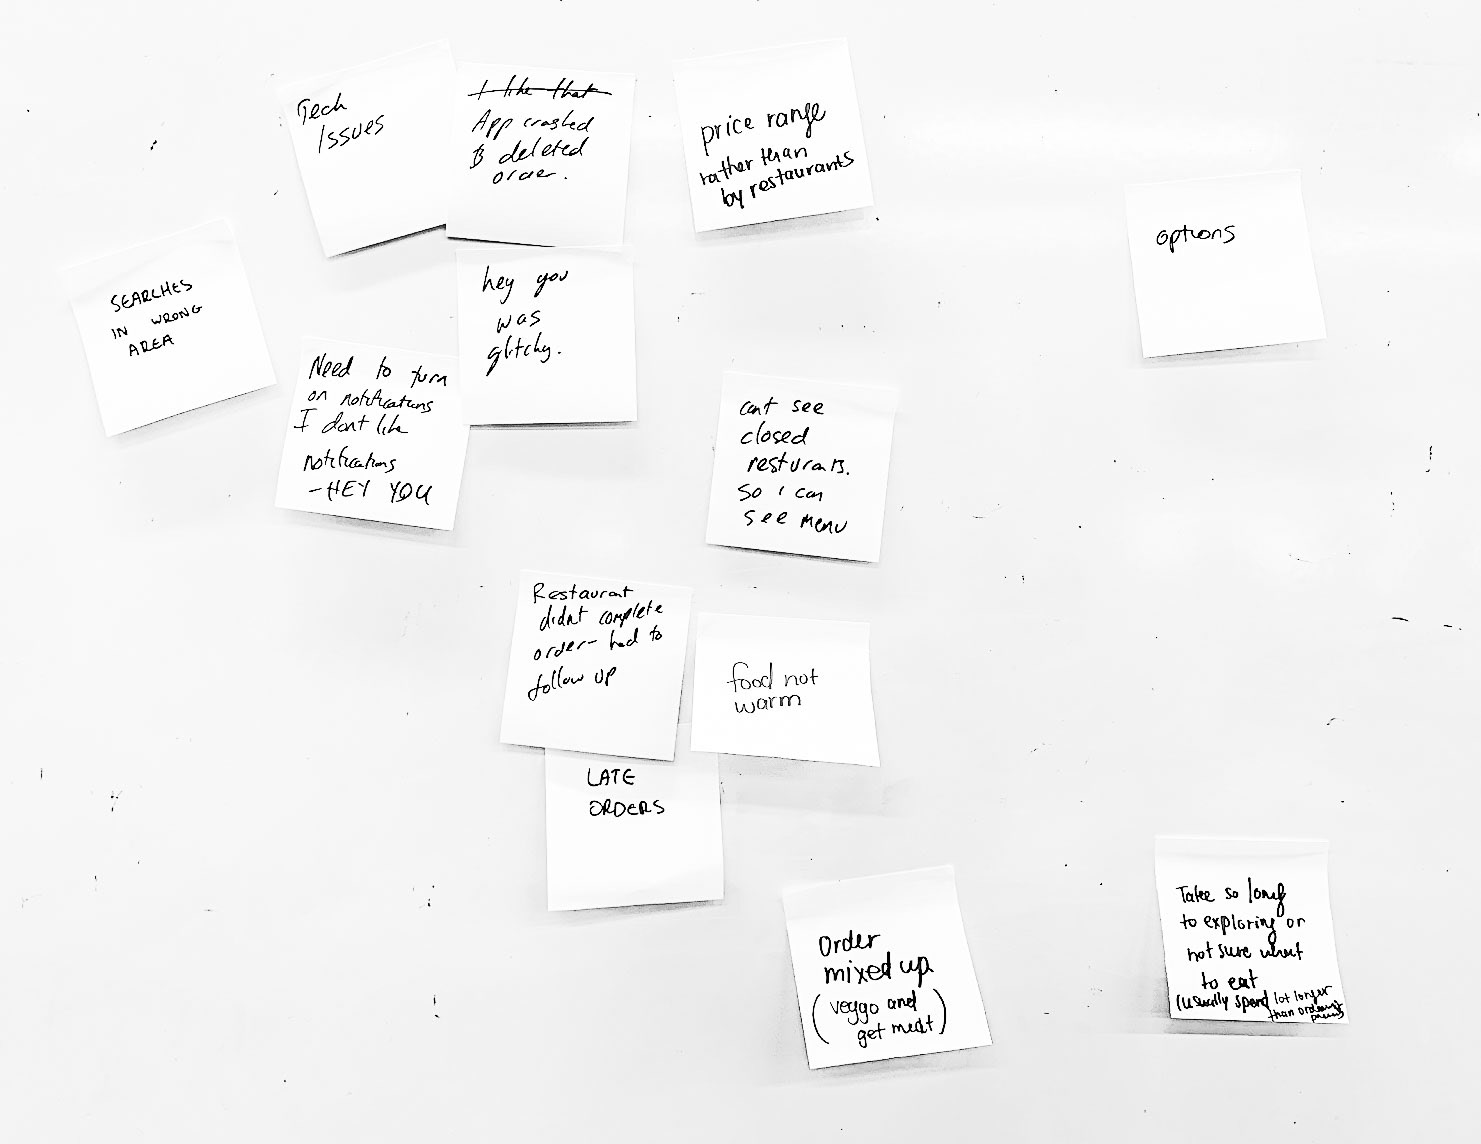 Tech
Issues
I like that
App crashed
& deleted
order.
price range
rather than
by restaurants
options
SEARCHES
IN WRONG
AREA
hey you
was
glitchy.
Need to turn
on notifications
I dont like
notifications
- HEY YOU
cant see
closed
resturants.
So I can
see menu
Restaurant
didnt complete
order - had to
follow up
food not
warm
LATE
ORDERS
Order
mixed up
(veggo and
get meat)
Take so long
to exploring or
not sure what
to eat
(usually spend lot longer
than ordering